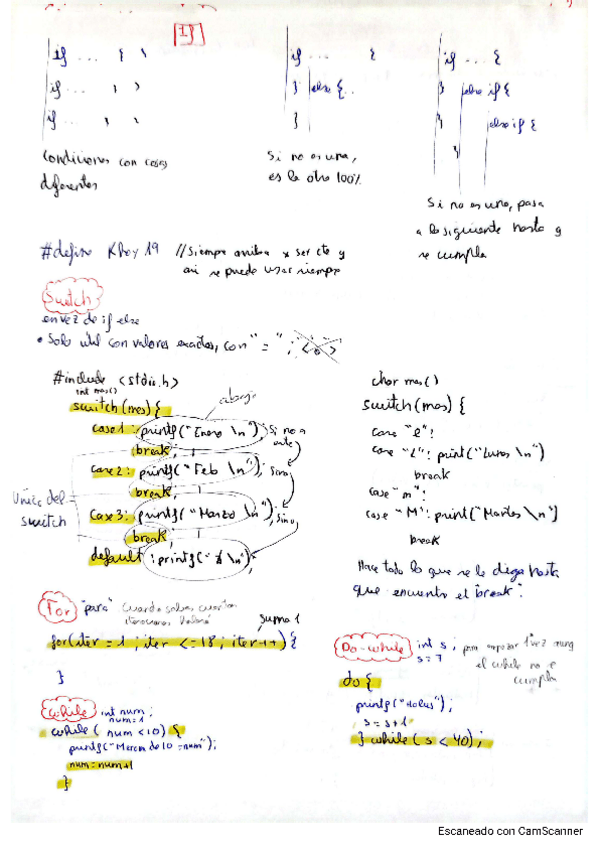 1]
if ... { }
if ... } }
if ... } }
Condiciones con cosas
diferentes
if ... {
} else {..
}
Si no es una,
es la otra 100%
if ... {
} else if {
else if {
}
Si no es uno, pasa
a lo siguiente hasta q
se cumpla
#define Khoy 19 //Siempre arriba x ser cte y
asi se puede usar siempre
Switch
en vez de if else
• Solo útil con valores exactos, con "="; < o >
#include <stdio.h>
int mes()
switch(mes){
case 1: printf("Enero \n");
break;
case 2: printf("Feb \n");
break;
case 3: printf("Marzo \n");
break;
default: printf(" \n");
Si no a
este
Sino
Sino
Único del
switch
char mes()
switch(mes) {
case "l":
case "L": print("Lunes \n")
break
case "m":
case "M": print("Martes \n")
break
Hace todo lo que se le diga hasta
que encuentra el break.
For "para" Cuando sabes cuantas
iteraciones
suma 1
for(iter = 1; iter <= 18; iter++) {
}
While int num;
num=1
while( num < 10) {
printf("Menor de 10 =num");
num = num+1
}
Do-while int s; para empezar 1ª vez
s = 7
el while no se
cumpla
do {
printf("Holas");
s = s+1
} while( s < 40);
Escaneado con CamScanner